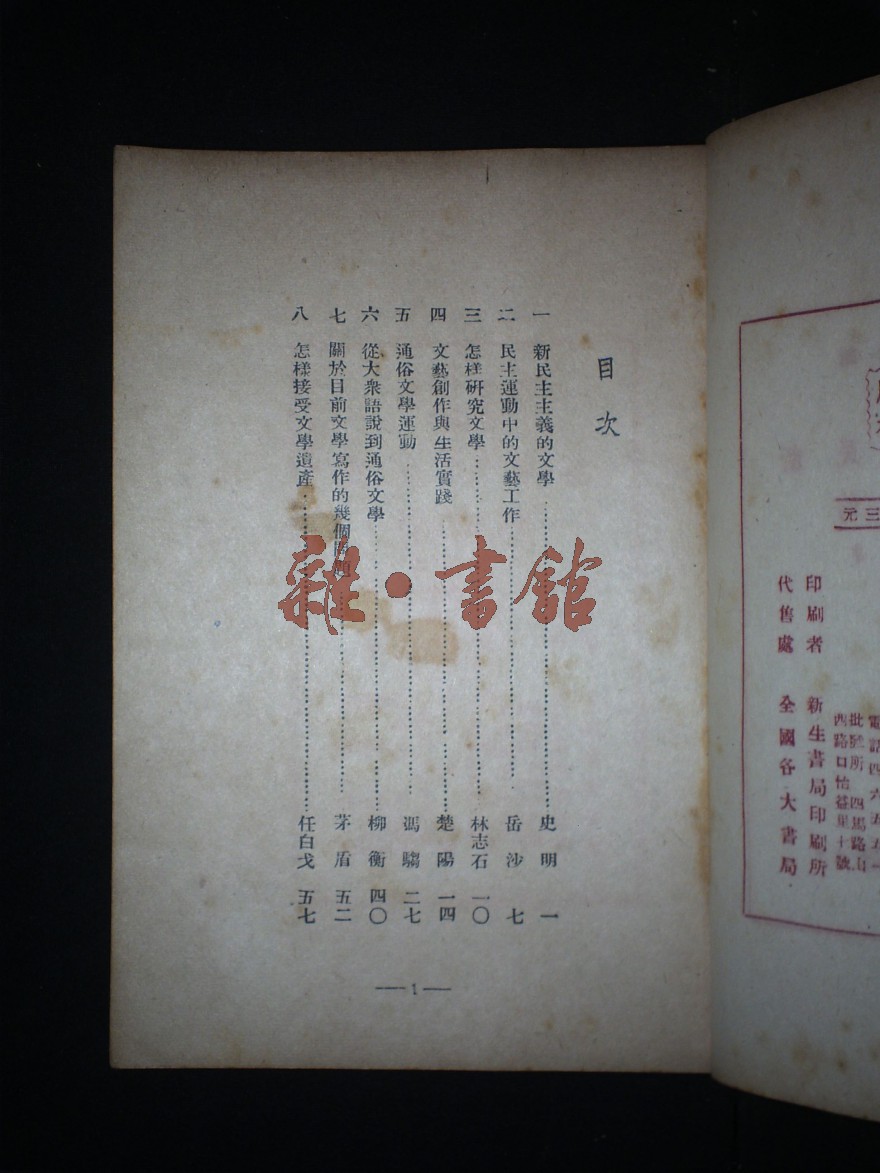 目次
一 新民主主義的文學 史明 一
二 民主運動中的文藝工作 岳沙 七
三 怎樣研究文學 林志石 一〇
四 文藝創作與生活實踐 楚陽 一四
五 通俗文學運動 馮騶 二七
六 從大衆語說到通俗文學 柳衡 四〇
七 關於目前文學寫作的幾個問題 茅盾 五二
八 怎樣接受文學遺產 任白戈 五七
—1—
雜·書館
三元
電話四六五五一
批發所 四馬路
西路口怡益里十號
印刷者 新生書局印刷所
代售處 全國各大書局